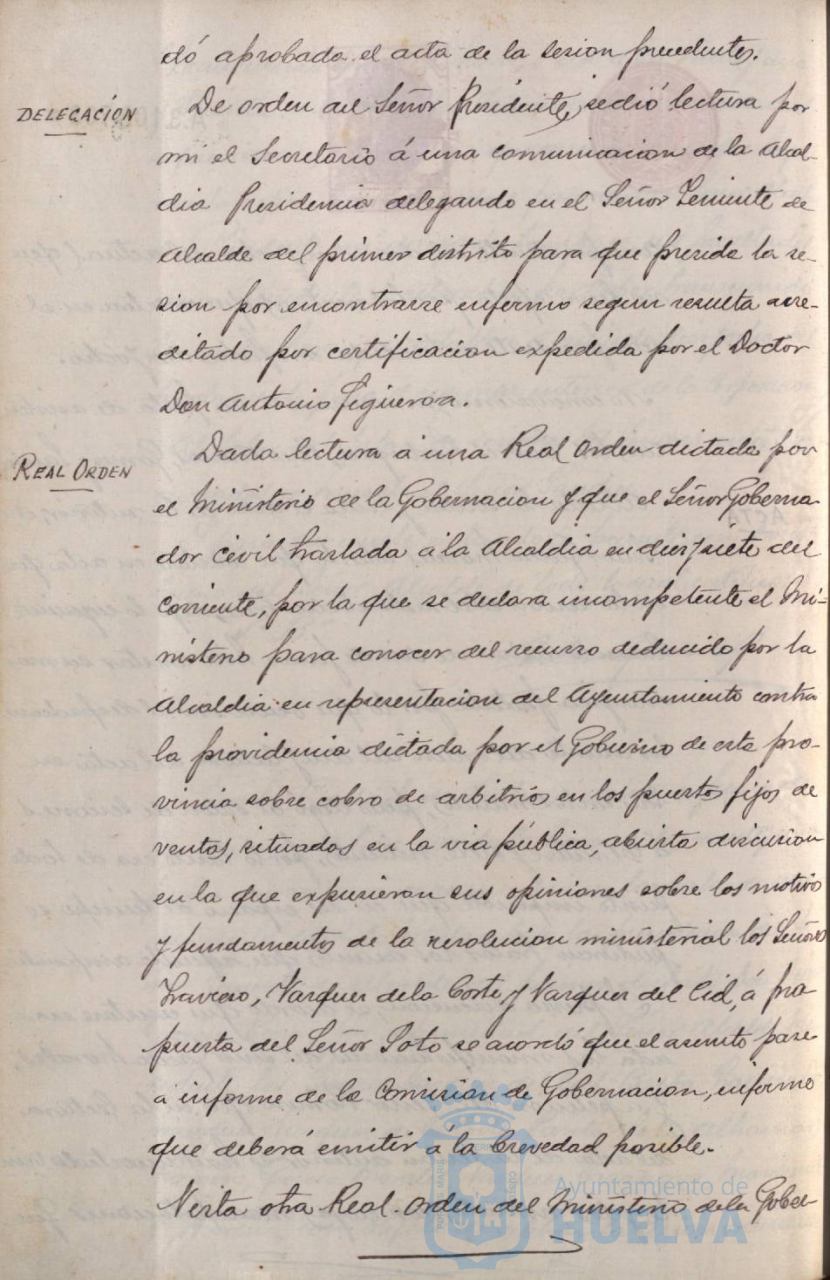 dó aprobada el acta de la sesion precedente.
DELEGACIÓN
De orden del Señor Presidente, se dió lectura por
mi el Secretario á una comunicacion de la Alcal-
dia Presidencia delegando en el Señor Teniente de
Alcalde del primer distrito para que presida la se-
sion por encontrarse enfermo segun resulta acre-
ditado por certificacion expedida por el Doctor
Don Antonio Figueroa.
REAL ORDEN
Dada lectura á una Real Orden dictada por
el Ministerio de la Gobernacion y que el Señor Goberna-
dor Civil traslada á la Alcaldia en diez y siete del
corriente, por la que se declara incompetente el Mi-
nisterio para conocer del recurso deducido por la
Alcaldia en representacion del Ayuntamiento contra
la providencia dictada por el Gobierno de esta pro-
vincia sobre cobro de arbitrios en los puestos fijos de
ventas, situados en la via pública, abierta discusion
en la que expusieran sus opiniones sobre los motivos
y fundamentos de la resolucion ministerial los Señores
Travieso, Vazquez de la Corte y Vazquez del Cid, á pro
puesta del Señor Soto se acordó que el asunto pase
á informe de la Comision de Gobernacion, informe
que deberá emitir á la brevedad posible.
Vista otra Real Orden del Ministerio de la Gober-
Ayuntamiento de
HUELVA